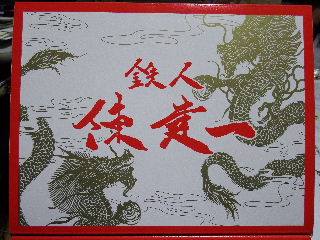 鉄人
陳建一